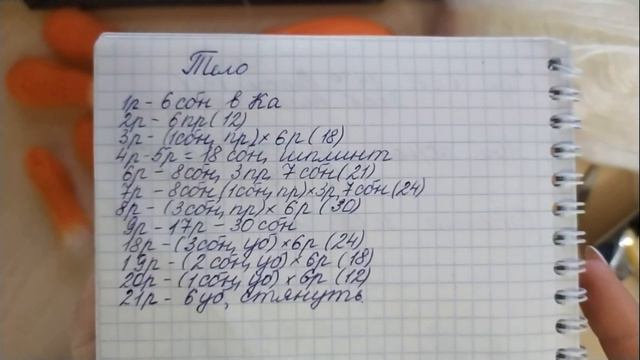 Тело
1р - 6 сбн в Ка
2р - 6 пр (12)
3р - (1сбн, пр) × 6р (18)
4р - 5р = 18 сбн, шплинт
6р - 8сбн, 3пр, 7 сбн (21)
7р - 8сбн (1сбн, пр)×3р, 7сбн (24)
8р - (3сбн, пр)× 6р (30)
9р - 17р - 30 сбн
18р - (3 сбн, уб) × 6р (24)
19р - (2 сбн, уб) × 6р (18)
20р - (1сбн, уб) × 6р (12)
21р - 6 уб, стянуть